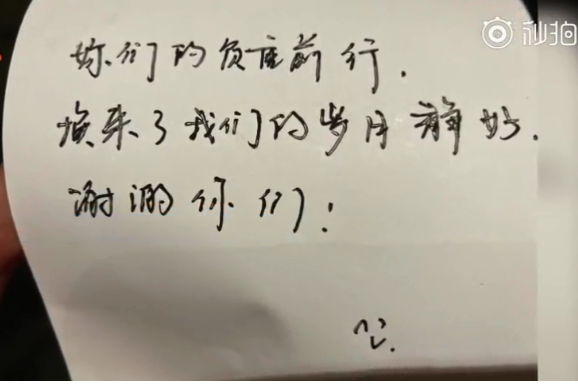 秒拍
你们的负重前行.
换来了我们的岁月静好.
谢谢你们!